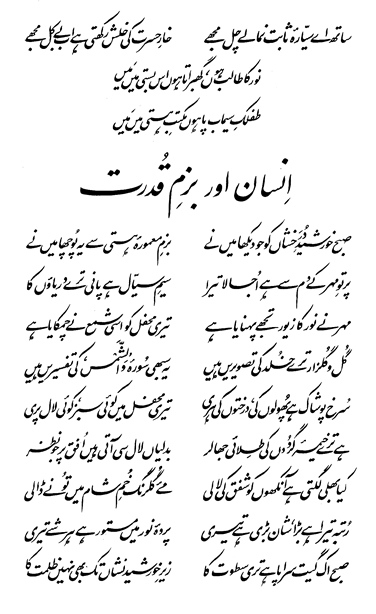 ساتھ اے سیّارۂ ثابت نما لے چل مجھے خارِ حسرت کی خلش رکھتی ہے اب بے کل مجھے
نور کا طالب ہوں گھبراتا ہوں اس بستی میں مَیں
طفلکِ سیماب پا ہوں مکتبِ ہستی میں مَیں
اِنسان اور بزمِ قُدرت
صبح خورشیدِ دُرَخشاں کو جو دیکھا میں نے بزمِ معمورۂ ہستی سے یہ پُوچھا میں نے
پرتوِ مہر کے دم سے ہے اُجالا تیرا سیمِ سیّال ہے پانی ترے دریاؤں کا
مہر نے نور کا زیور تجھے پہنایا ہے تیری محفل کو اسی شمع نے چمکایا ہے
گُل و گلزار ترے خُلد کی تصویریں ہیں یہ سبھی سُورۂ وَالشّمس کی تفسیریں ہیں
سُرخ پوشاک ہے پھُولوں کی، درختوں کی ہری تیری محفل میں کوئی سبز، کوئی لال پری
ہے ترے خیمۂ گردُوں کی طلائی جھالر بدلیاں لال سی آتی ہیں اُفق پر جو نظر
کیا بھلی لگتی ہے آنکھوں کو شفَق کی لالی مئے گلرنگ خُمِ شام میں تو نے ڈالی
رُتبہ تیرا ہے بڑا، شان بڑی ہے تیری پردۂ نور میں مستور ہے ہر شے تیری
صبح اک گیت سراپا ہے تری سطوت کا زیرِ خورشید نشاں تک بھی نہیں ظلمت کا